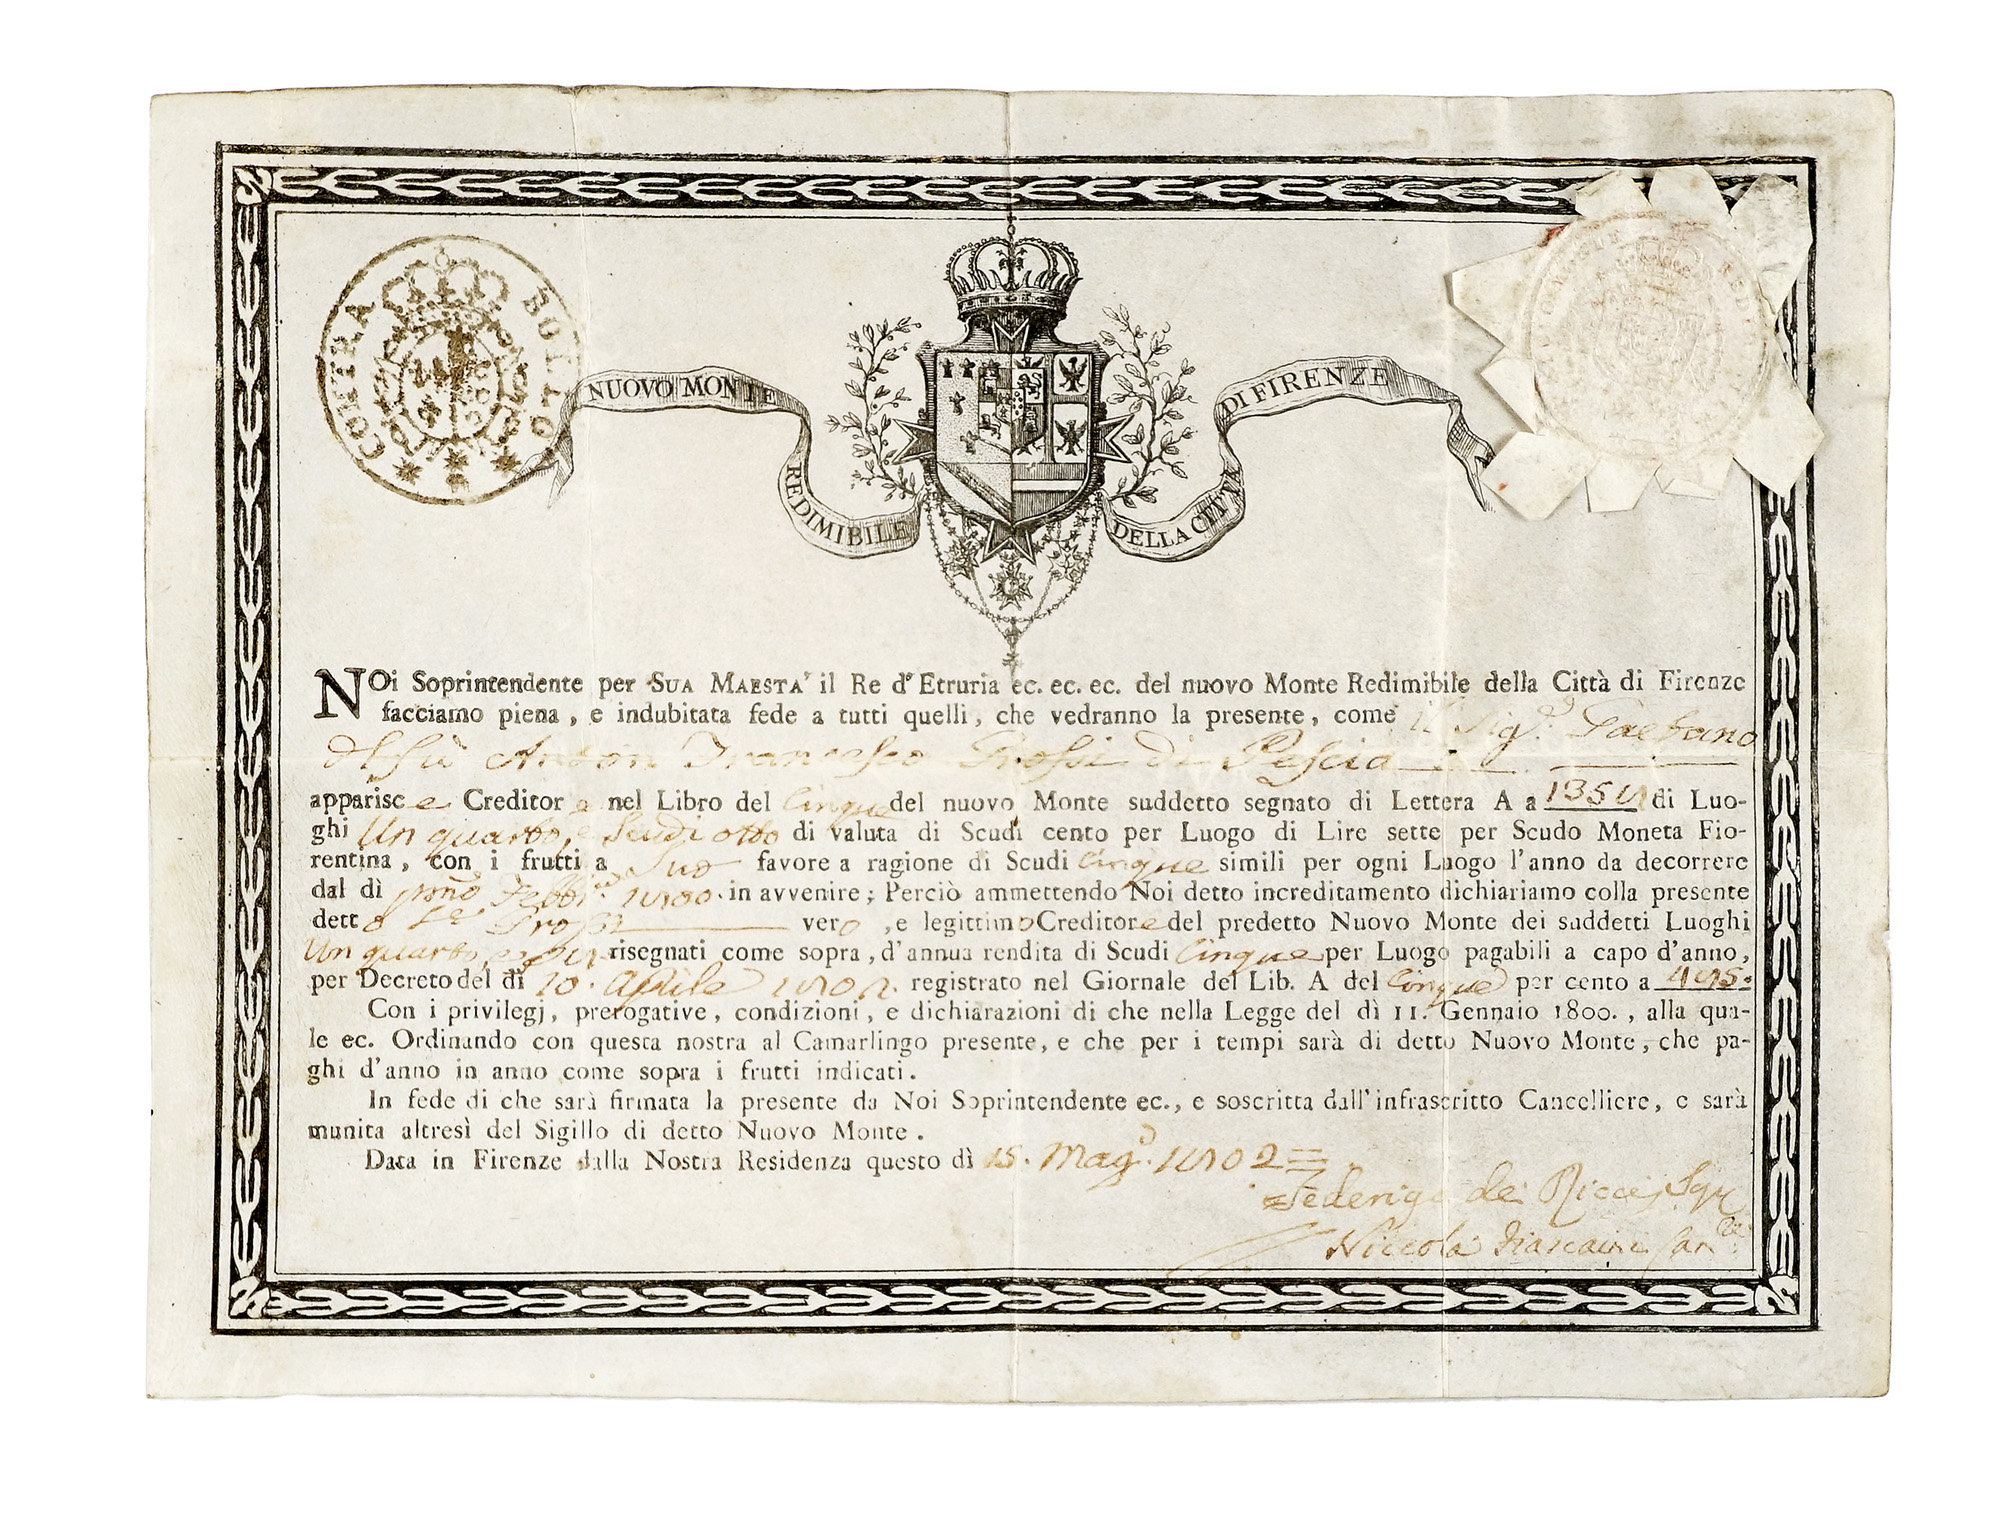 CONTRA BOLLO
NUOVO MONTE REDIMIBILE DELLA CITTA DI FIRENZE
NOi Soprintendente per SUA MAESTA' il Re d'Etruria ec. ec. ec. del nuovo Monte Redimibile della Città di Firenze
facciamo piena, e indubitata fede a tutti quelli, che vedranno la presente, come il Sig.r Gaetano
del fù Anton Francesco Grossi di Pescia
apparisce Creditore nel Libro del Cinque del nuovo Monte suddetto segnato di Lettera A a di Luo-
ghi Un quarto, e Scudi otto di valuta di Scudi cento per Luogo di Lire sette per Scudo Moneta Fio-
rentina, con i frutti a suo favore a ragione di Scudi Cinque simili per ogni Luogo l'anno da decorrere
dal dì pmo Febb. 1800. in avvenire; Perciò ammettendo Noi detto increditamento dichiariamo colla presente
detto Grossi vero, e legittimo Creditore del predetto Nuovo Monte dei suddetti Luoghi
Un quarto, risegnati come sopra, d'annua rendita di Scudi Cinque per Luogo pagabili a capo d'anno,
per Decreto del dì 10. Aprile 1802. registrato nel Giornale del Lib. A del Cinque per cento a
Con i privilegj, prerogative, condizioni, e dichiarazioni di che nella Legge del dì 11. Gennaio 1800., alla qua-
le ec. Ordinando con questa nostra al Camarlingo presente, e che per i tempi sarà di detto Nuovo Monte, che pa-
ghi d'anno in anno come sopra i frutti indicati.
In fede di che sarà firmata la presente da Noi Soprintendente ec., e soscritta dall'infrascritto Cancelliere, e sarà
munita altresì del Sigillo di detto Nuovo Monte.
Data in Firenze dalla Nostra Residenza questo dì 15. Mag.o 1802
Federigo de Ricci
Niccola Can.re